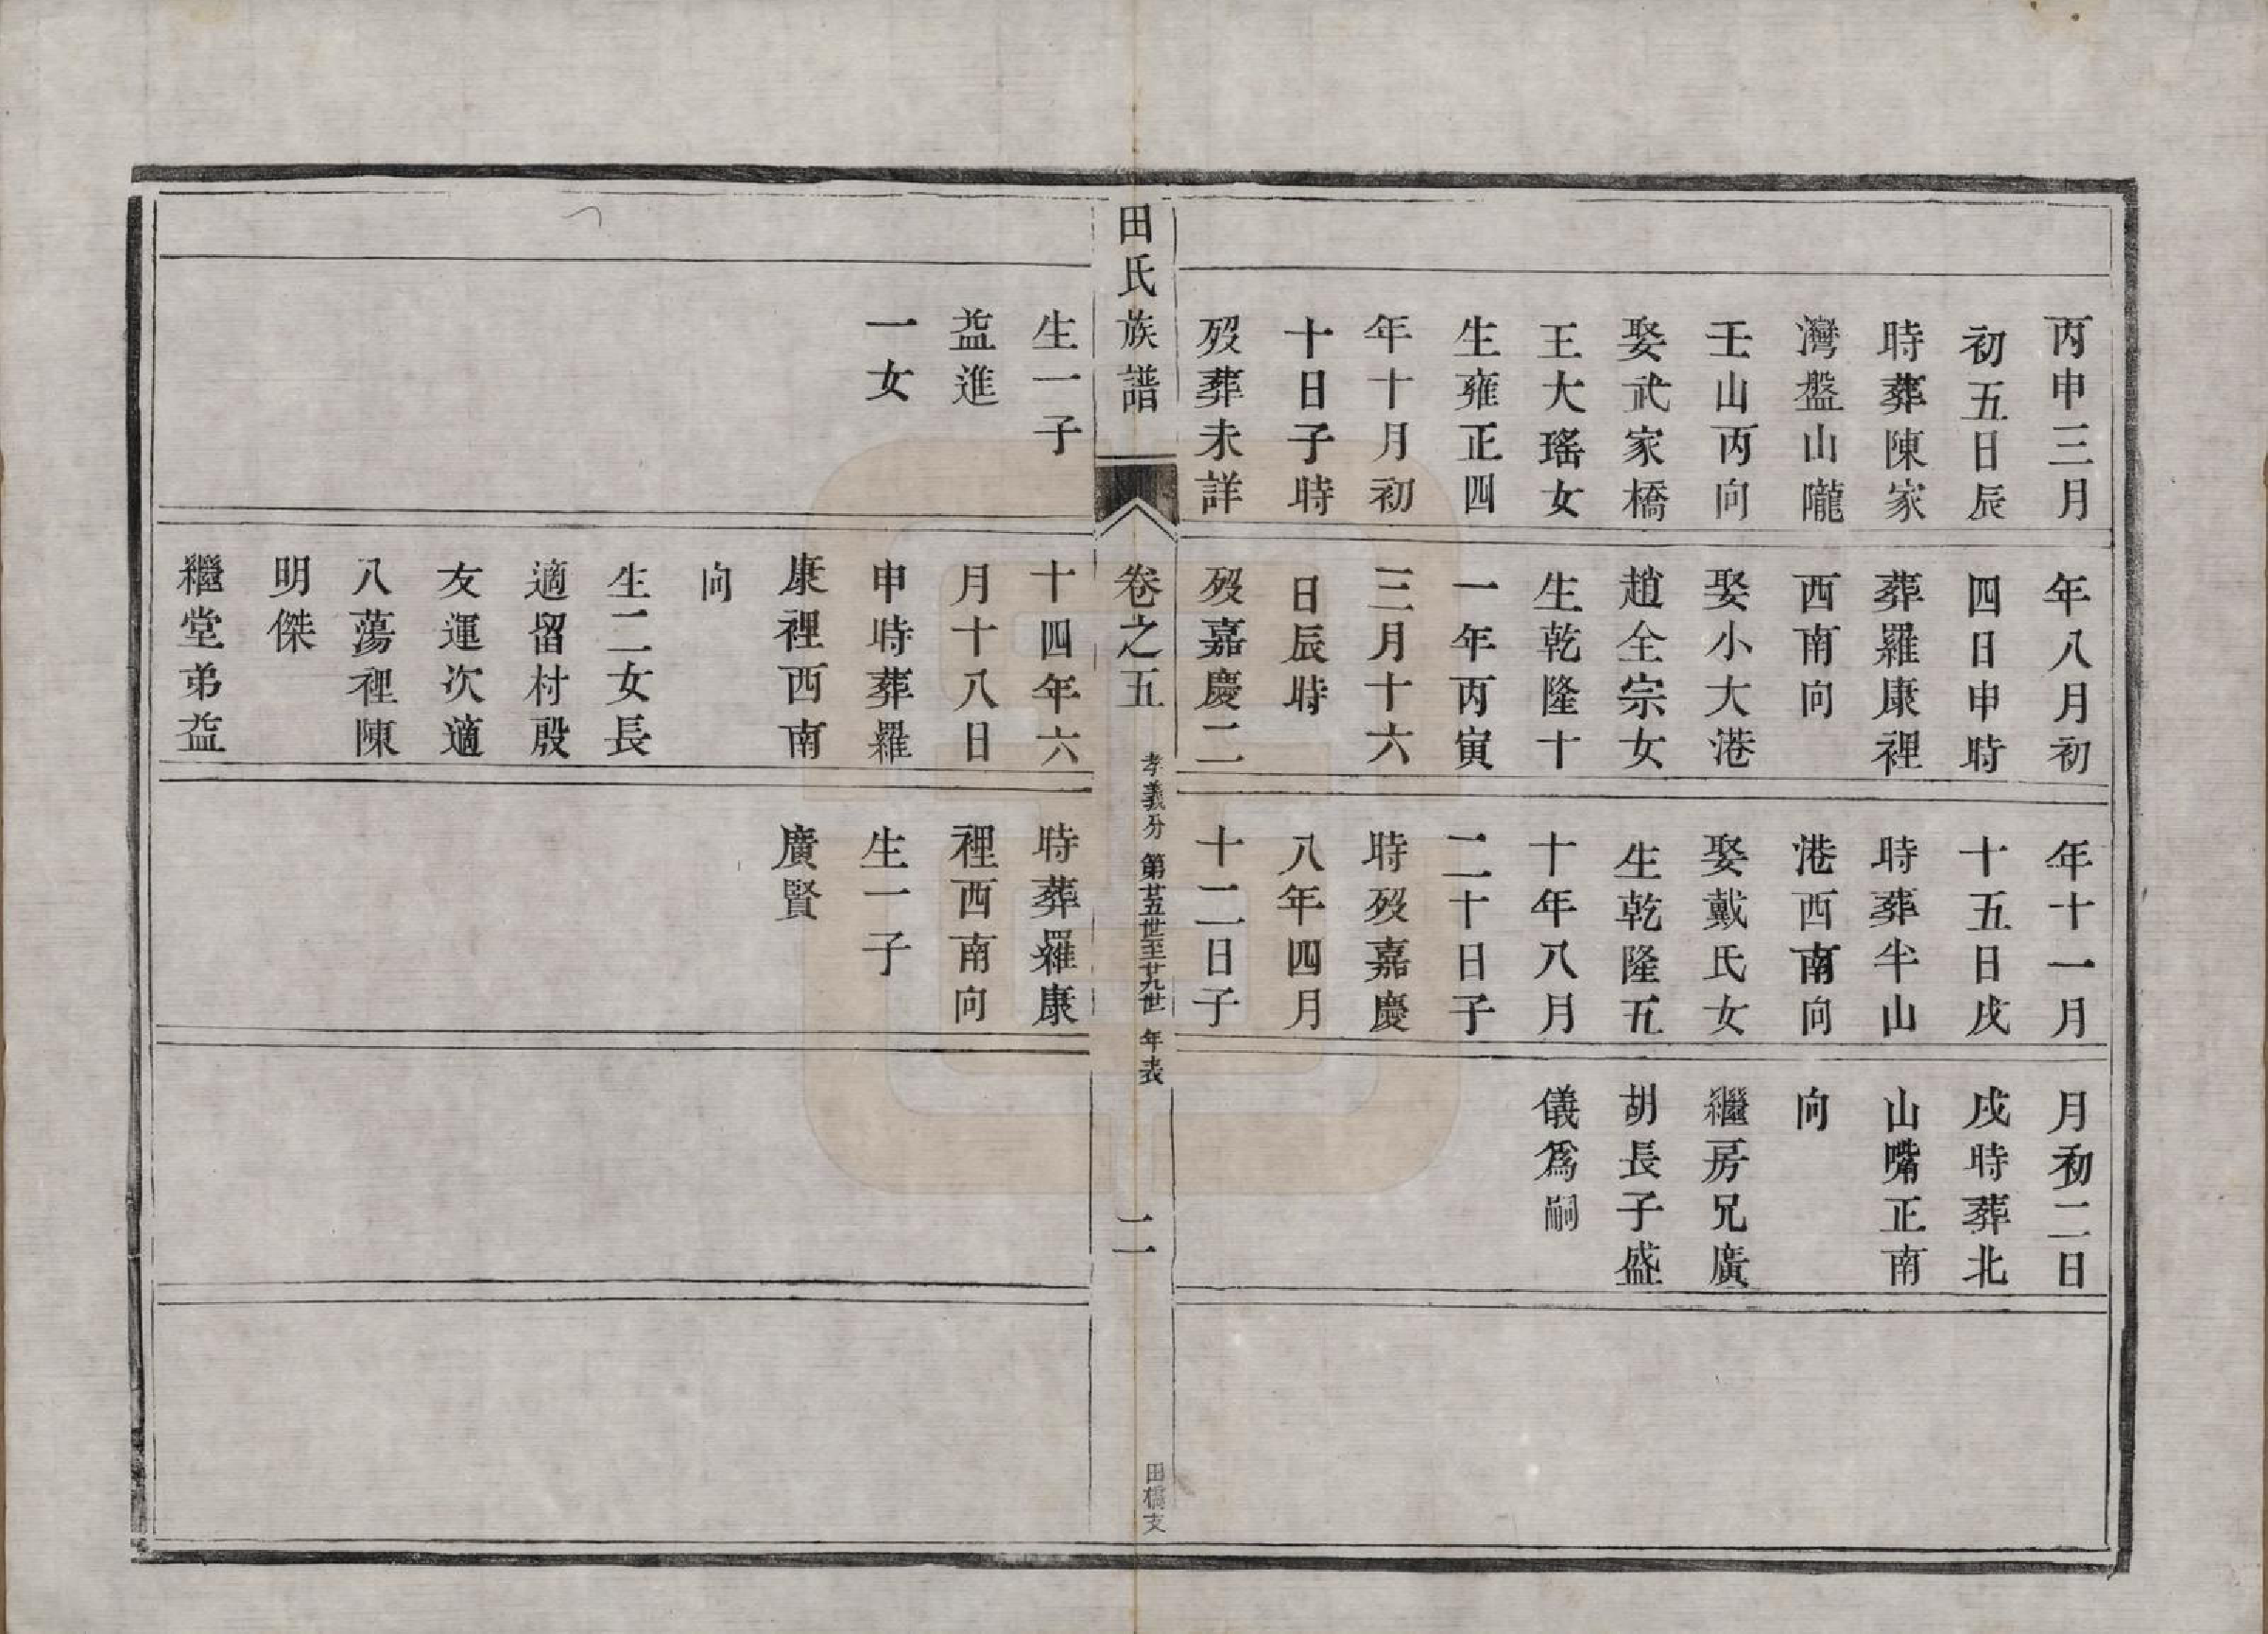 丙申三月
初五日辰
時葬陳家
灣盤山隴
壬山丙向
娶武家橋
王大瑤女
生雍正四
年十月初
十日子時
歿葬未詳
年八月初
四日申時
葬羅康裡
西南向
娶小大港
趙全宗女
生乾隆十
一年丙寅
三月十六
日辰時
歿嘉慶二
年十一月
十五日戌
時葬半山
港西南向
娶戴氏女
生乾隆五
十年八月
二十日子
時歿嘉慶
八年四月
十二日子
月初二日
戌時葬北
山嘴正南
向
繼房兄廣
胡長子盛
儀爲嗣
田氏族譜
卷之五
孝義分 第廿五世至廿九世 年表
二
田橋支
生一子
益進
一女
十四年六
月十八日
申時葬羅
康裡西南
向
生二女長
適留村殷
友運次適
八蕩裡陳
明傑
繼堂弟益
時葬羅康
裡西南向
生一子
廣賢